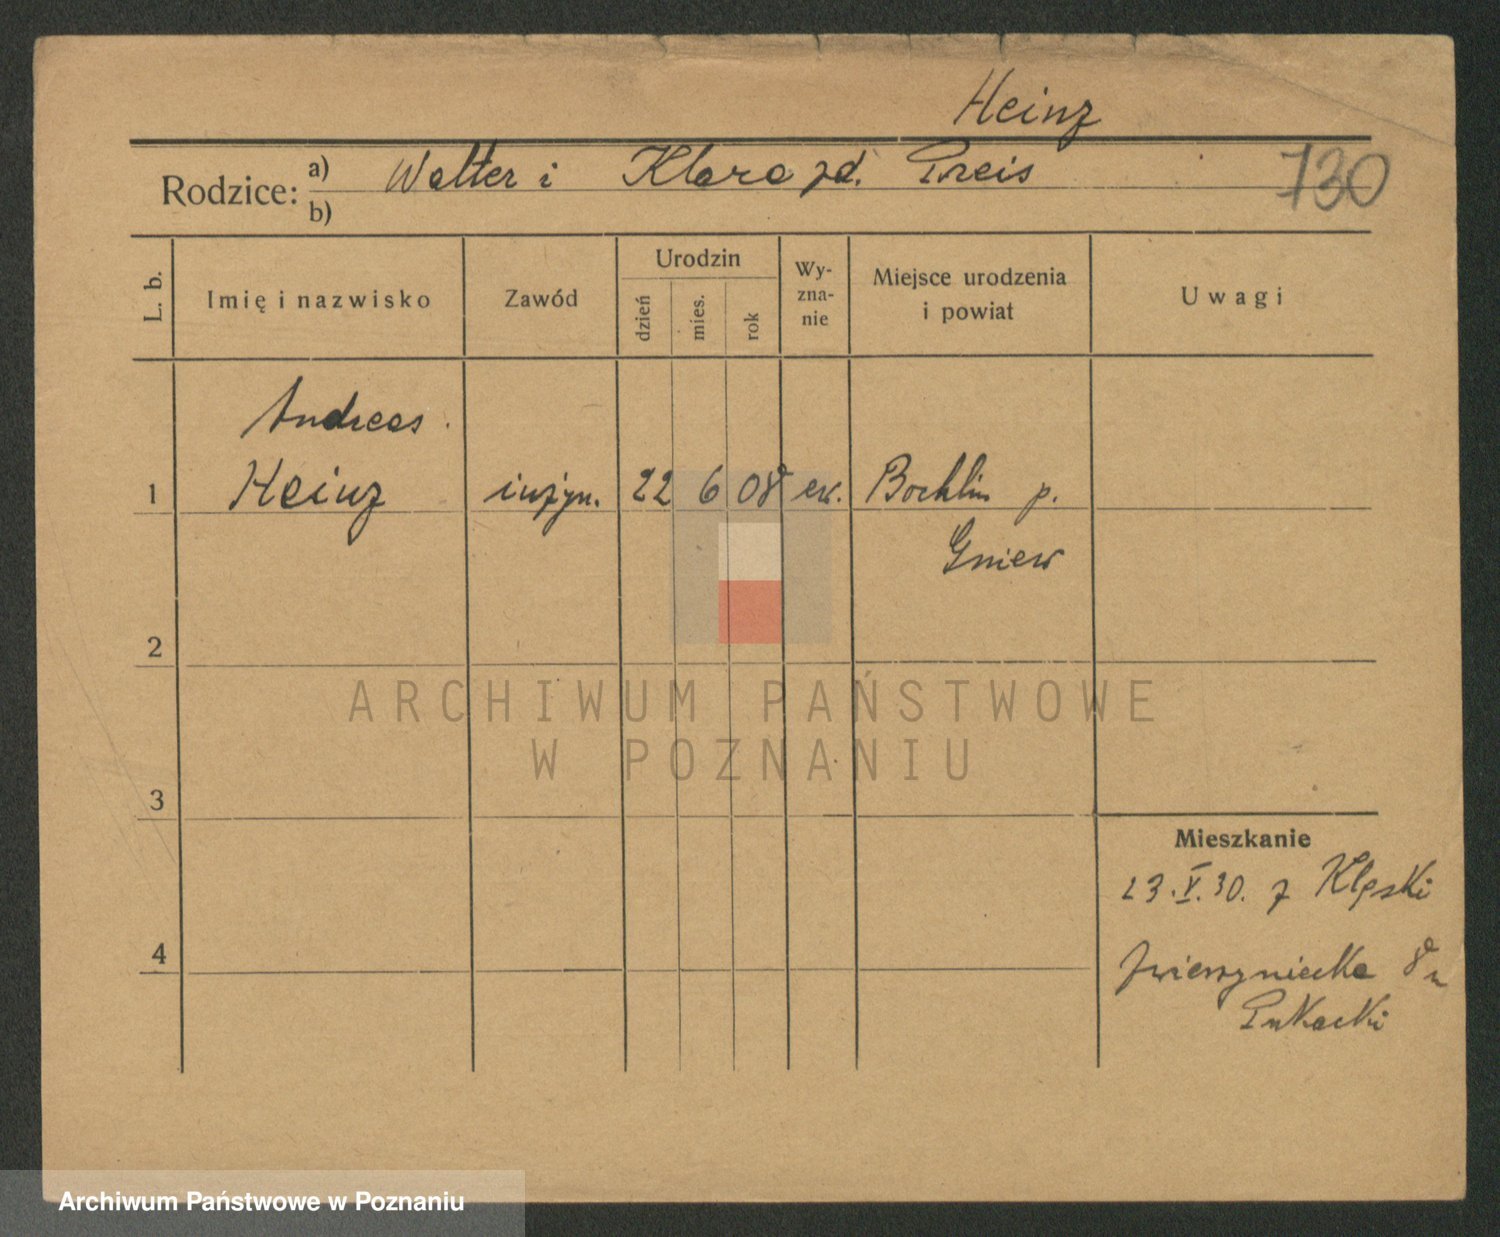 Heinz
Rodzice: a) Walter i Klara zd. Preis
b)
730
L. b.
Imię i nazwisko
Zawód
Urodzin
dzień
mies.
rok
Wy-
zna-
nie
Miejsce urodzenia
i powiat
Uwagi
Andreas
1 Heinz inżyn. 22 6 08 ew. Bochlin p.
Gniew
2
3
4
Mieszkanie
23.V.30. z Kłęcki
Zwierzyniecka 8 u
Pukacki
ARCHIWUM PAŃSTWOWE
W POZNANIU
Archiwum Państwowe w Poznaniu